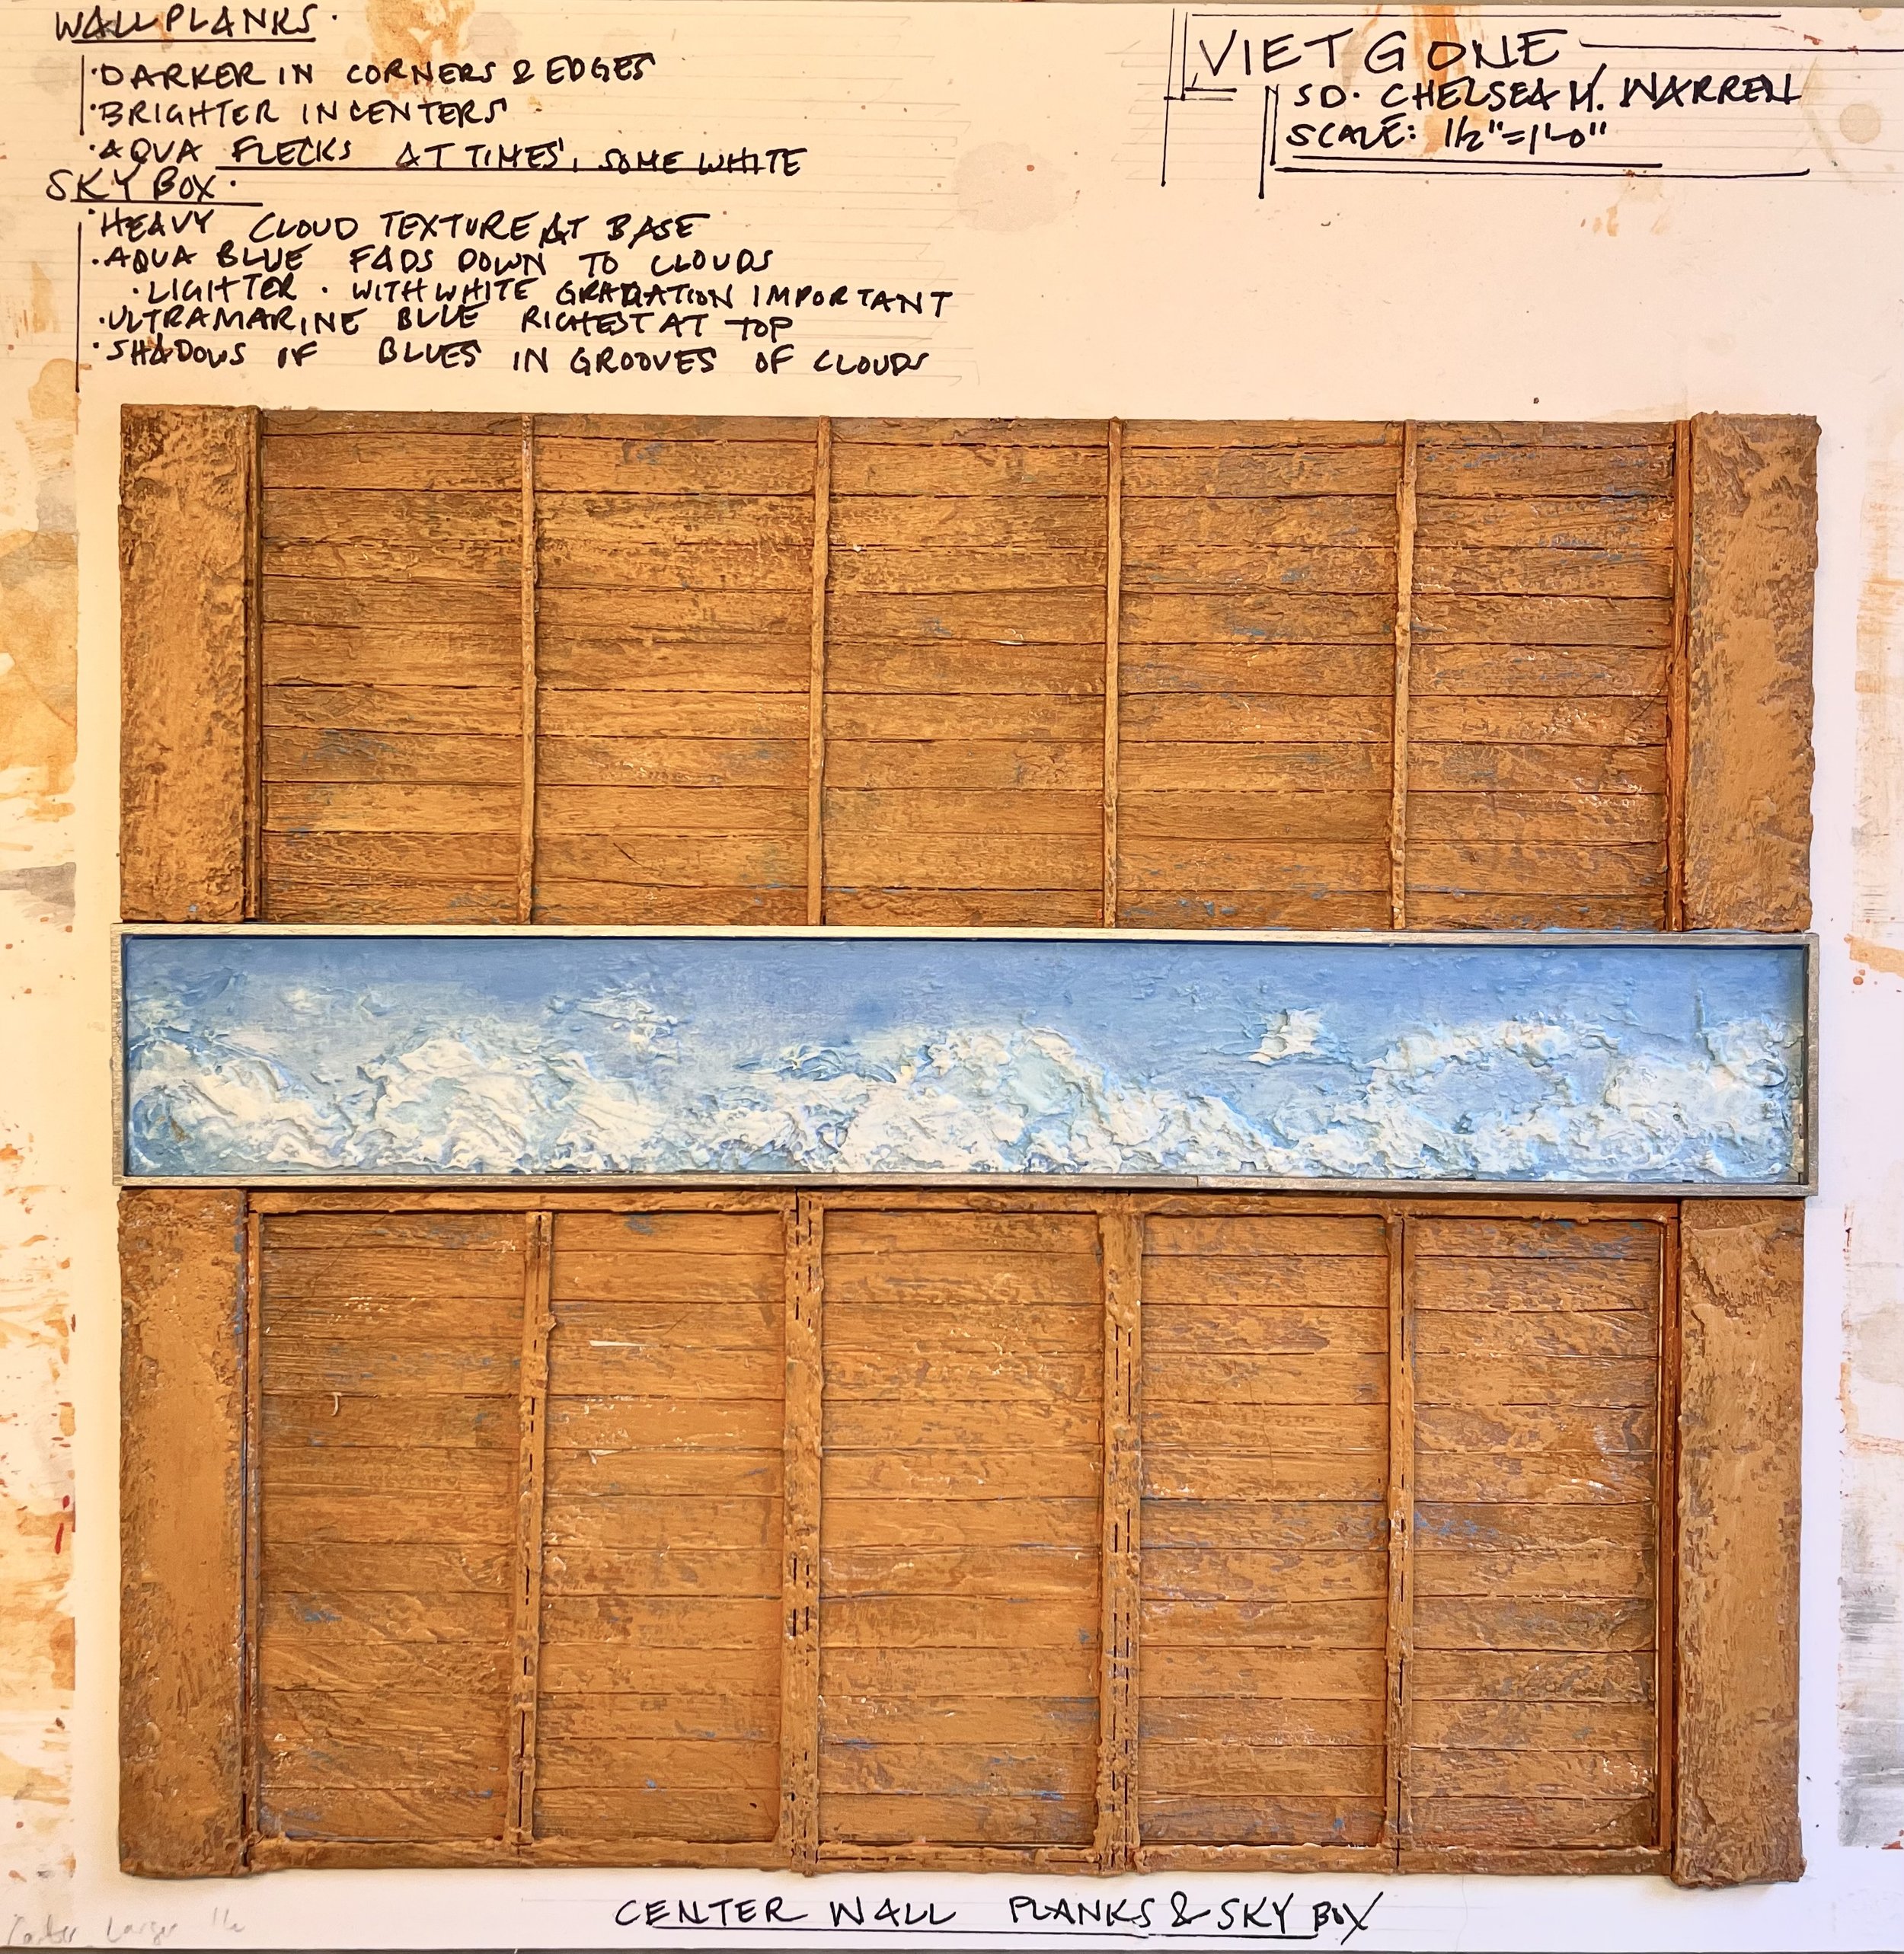 WALL PLANKS.
• DARKER IN CORNERS & EDGES
• BRIGHTER IN CENTERS
• AQUA FLECKS AT TIMES, SOME WHITE
SKY BOX.
• HEAVY CLOUD TEXTURE AT BASE
• AQUA BLUE FADS DOWN TO CLOUDS
• LIGHTER • WITH WHITE GRADATION IMPORTANT
• ULTRAMARINE BLUE RICHEST AT TOP
• SHADOWS OF BLUES IN GROOVES OF CLOUDS
VIETGONE
SD. CHELSEA M. WARREN
SCALE: 1½"=1'-0"
CENTER WALL PLANKS & SKY BOX